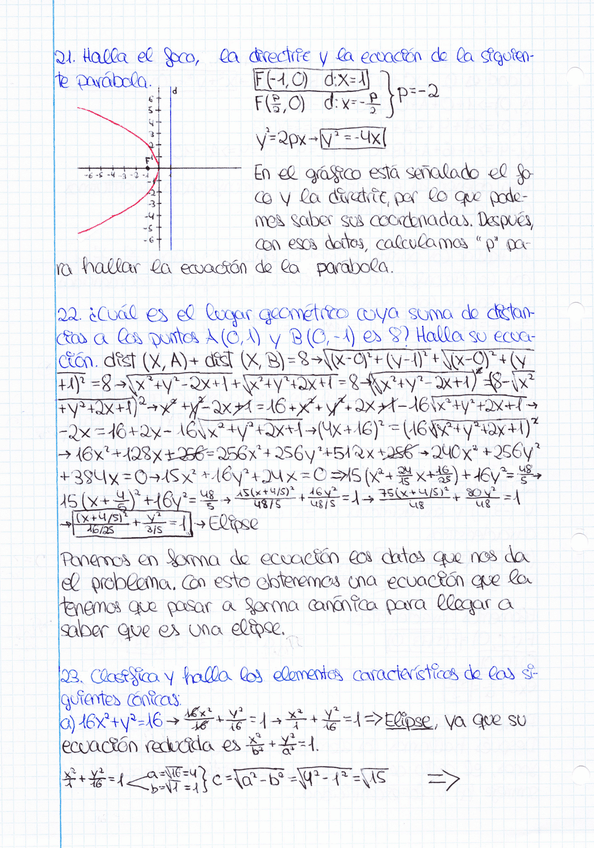 21. Halla el foco, la directriz y la ecuación de la siguien-
te parábola.
F(-1,0) d:x=1
F(p/2,0) d:x=-p/2 } p=-2
y²=2px→y²=-4x
En el gráfico está señalado el fo-
co y la directriz, por lo que pode-
mos saber sus coordenadas. Después,
con esos datos, calculamos "p" pa-
ra hallar la ecuación de la parábola.
22. ¿Cuál es el lugar geométrico cuya suma de distan-
cias a los puntos A(0,1) y B(0,-1) es 8? Halla su ecua-
ción. dist (X,A) + dist (X,B) = 8→√(x-0)²+(y-1)² + √(x-0)²+(y
+1)² = 8→√x²+y²-2x+1 + √x²+y²+2x+1 = 8→(√x²+y²-2x+1)² = (8-√x²
+y²+2x+1)²→x²+y²-2x+1=16+x²+y²+2x+1-16√x²+y²+2x+1→
-2x=16+2x-16√x²+y²+2x+1→(4x+16)²=(16√x²+y²+2x+1)²
→16x²+128x+256=256x²+256y²+512x+256→240x²+256y²
+384x=0→15x²+16y²+24x=0⇒15(x²+24/15x+16/25)+16y²=48/5→
15(x+4/5)²+16y²=48/5→15(x+4/5)²/48/5+16y²/48/5=1→75(x+4/5)²/48+80y²/48=1
→(x+4/5)²/16/25+y²/3/5=1→Elipse
Ponemos en forma de ecuación los datos que nos da
el problema. Con esto obtenemos una ecuación que la
tenemos que pasar a forma canónica para llegar a
saber que es una elipse.
23. Clasifica y halla los elementos característicos de las si-
guientes cónicas.
a) 16x²+y²=16→16x²/16+y²/16=1→x²/1+y²/16=1⇒Elipse, ya que su
ecuación reducida es x²/b²+y²/a²=1.
x²/1+y²/16=1 < a=√16=4 b=√1=1 } c=√a²-b²=√4²-1²=√15 ⇒
-6 -5 -4 -3 -2 -1 1
d
6
5
4
3
2
1
-1
-2
-3
-4
-5
-6